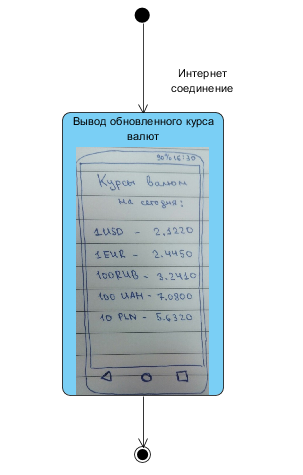 Интернет
соединение
Вывод обновленного курса
валют
90% 16:30
Курсы валют
на сегодня:
1USD - 2,1220
1EUR - 2.4450
100RUB - 3.2410
100 UAH - 7.0800
10 PLN - 5.6320